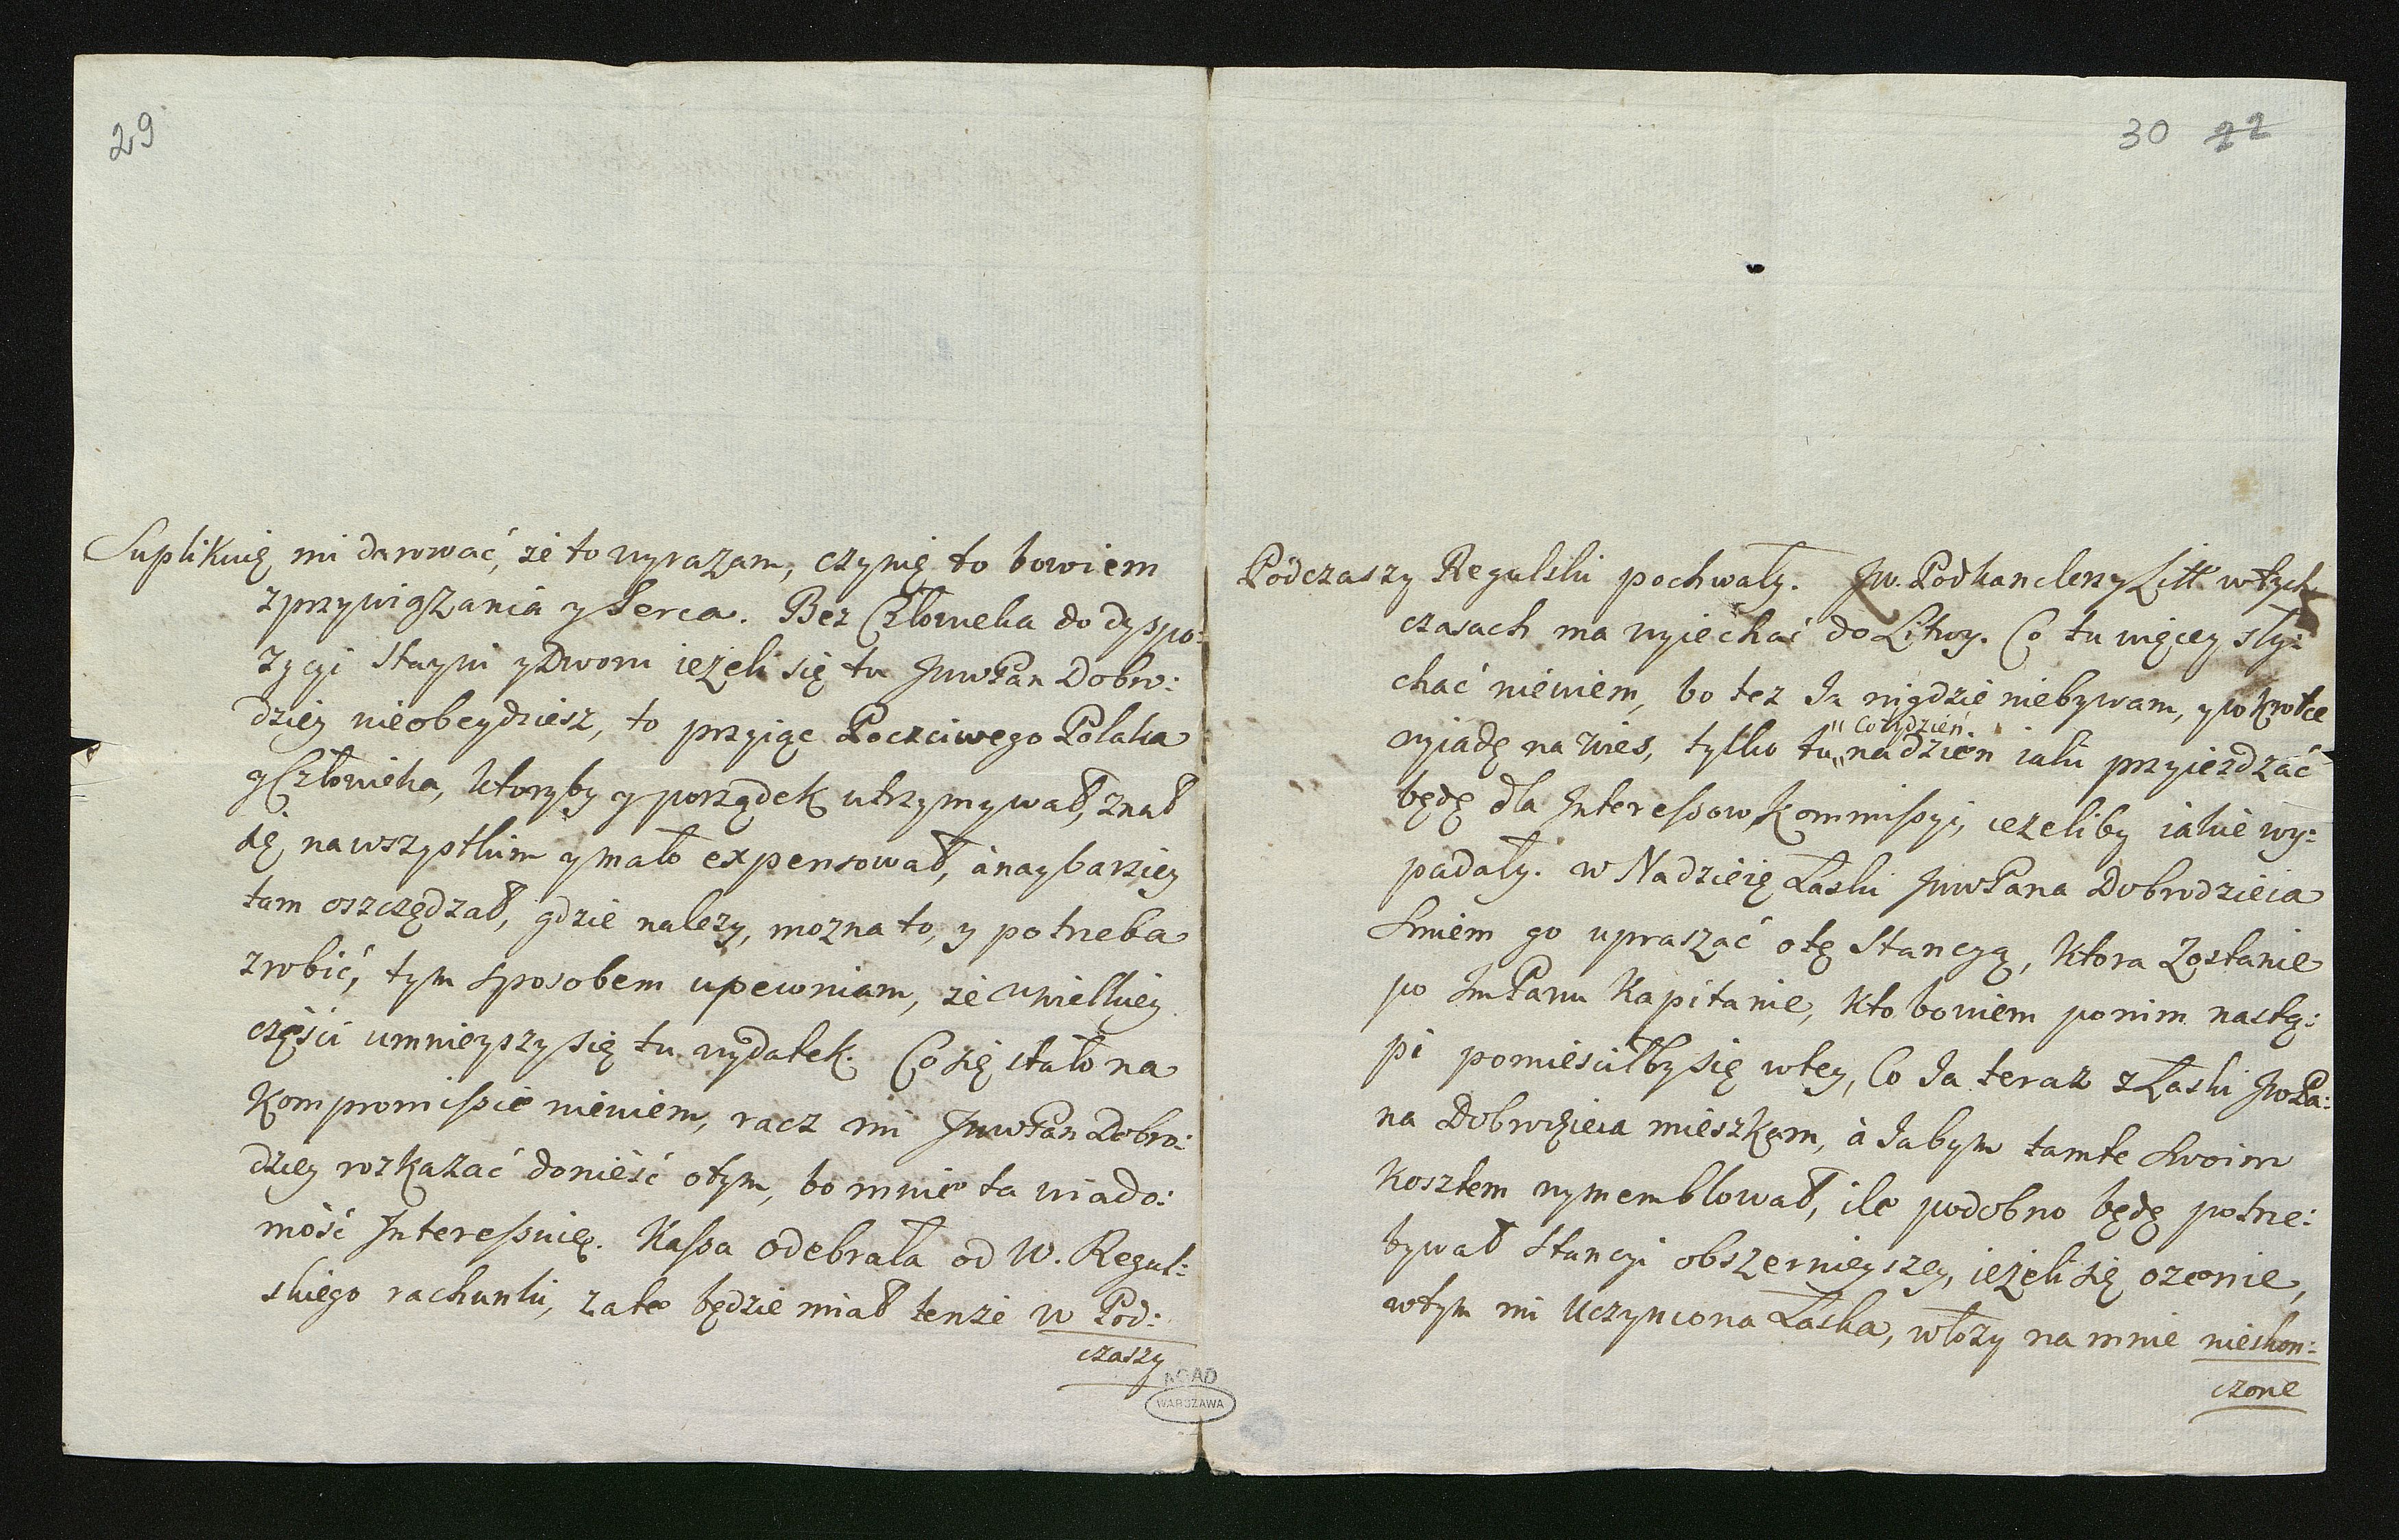 29
Suplikuię mi darować, że to wyrazam, czynię to bowiem
z przywiązania y Serca. Bez Człowieka do dyspo:
zycyi Stayni y Dworu ieżeli się tu JWPan Dobro:
dziey nieobeydziesz, to przyiąc Poczciwego Polaka
y Człowieka, ktoryby y porządek utrzymywał, znał
się na wszystkim y mało expensował, à naybarziey
tam oszczędzał, gdzie nalezy, mozna to, y potrzeba
zrobić, tym sposobem upewniam, ze w wielkiey
części umnieyszy się tu wydatek. Co się stało na
Kompromissie niewiem, racz mi JWPan Dobro:
dziey rozkazać donieść o tym, bo mnie ta wiado:
mość Interessuię. Kassa odebrała od W. Regul:
skiego rachunki, zate będzie miał tenze W Pod:
czaszy
AGAD
WARSZAWA
30 22
Podczaszy Regulski pochwały. JW. Podkanclerzy Litt w tych
czasach ma wyiechać do Litwy. Co tu więcey sły:
chać niewiem, bo tez Ja nigdzie niebywam, y wkrotce
Co tydzień
wyiadę na wies, tylko tu na dzien iaki przyiezdzać
będę dla Interessow Kommissyi, ieżeliby iakie wy:
padały. w Nadzieię Łaski JWPana Dobrodzieia
Smiem go upraszać o tę Stancyą, ktora Zostanie
po ImPanu Kapitanie, kto bowiem po nim nastą:
pi pomiesciłby się w tey, Co Ja teraz z Łaski JWPa:
na Dobrodzieia mieszkam, à Jabym tamte Swoim
kosztem wymeblował, ile podobno będę potrze:
bywał Stancyi obszernieyszey, ieżeli się ozenie,
w tym mi Uczyniona Łaska, włozy na mnie nieskon:
czone